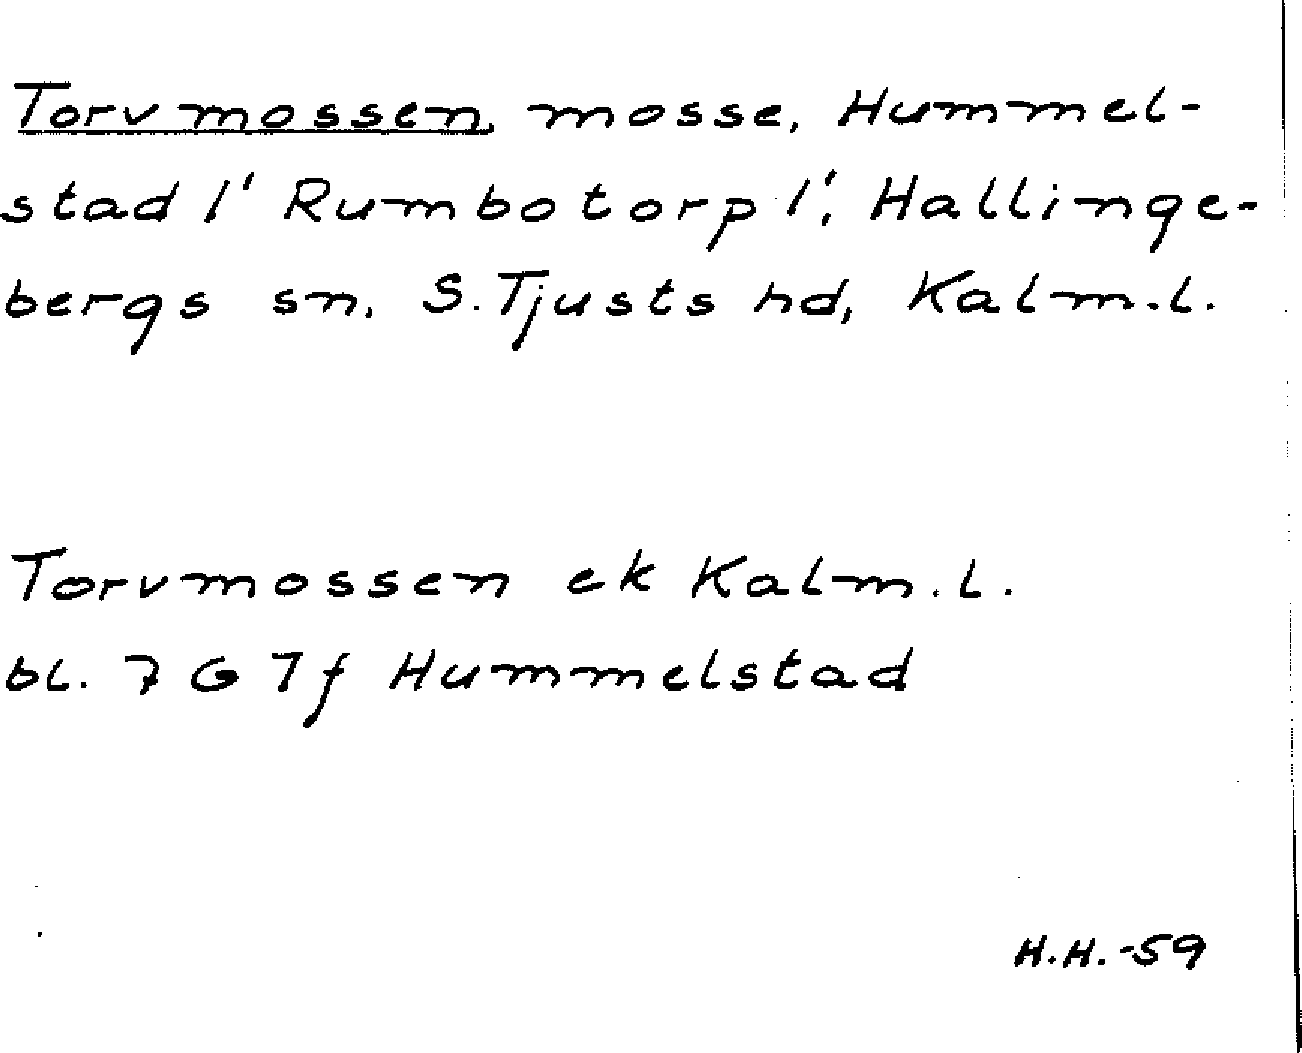 Torvmossen, mosse, Hummel-
stad 1' Rumbotorp 1', Hallinge-
bergs sn, S. Tjusts hd, Kalm.l.
Torvmossen ek Kalm.l.
bl. 7 G 7f Hummelstad
H.H. -59